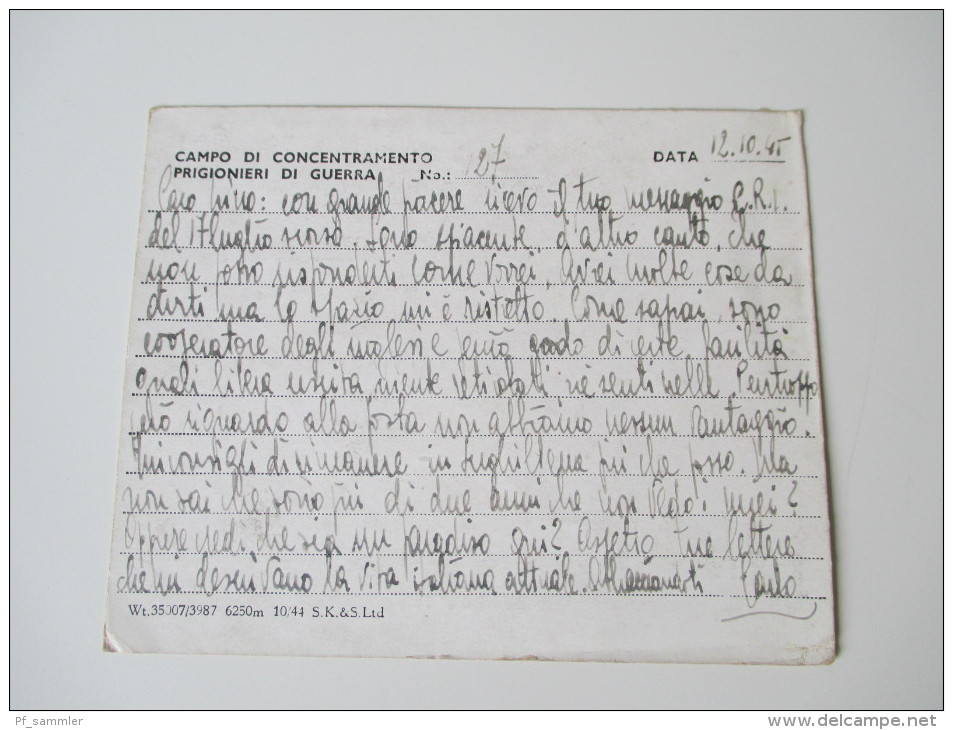 CAMPO DI CONCENTRAMENTO
PRIGIONIERI DI GUERRA No.: 27
DATA 12.10.45
Caro Nino: con grande piacere ricevo il tuo messaggio C.R.I.
del 17 luglio scorso. Sono spiacente, d'altro canto, che
non posso risponderti come vorrei. Avrei molte cose da
dirti ma lo spazio mi è ristretto. Come saprai, sono
cooperatore degli inglesi e perciò godo di certe facilità
quali libera uscita, niente reticolati, né sentinelle. Purtroppo
però riguardo alla posta non abbiamo nessun vantaggio.
Mi consigli di rimanere in Inghilterra più che posso. Ma
non sai che sono più di due anni che non vedo i miei?
Oppure credi che sia un paradiso qui? Aspetto tue lettere
che mi descrivano la vita italiana attuale. Abbracciandoti Carlo
Wt.35007/3987 6250m 10/44 S.K.&S.Ltd
Pf_sammler
www.delcampe.net